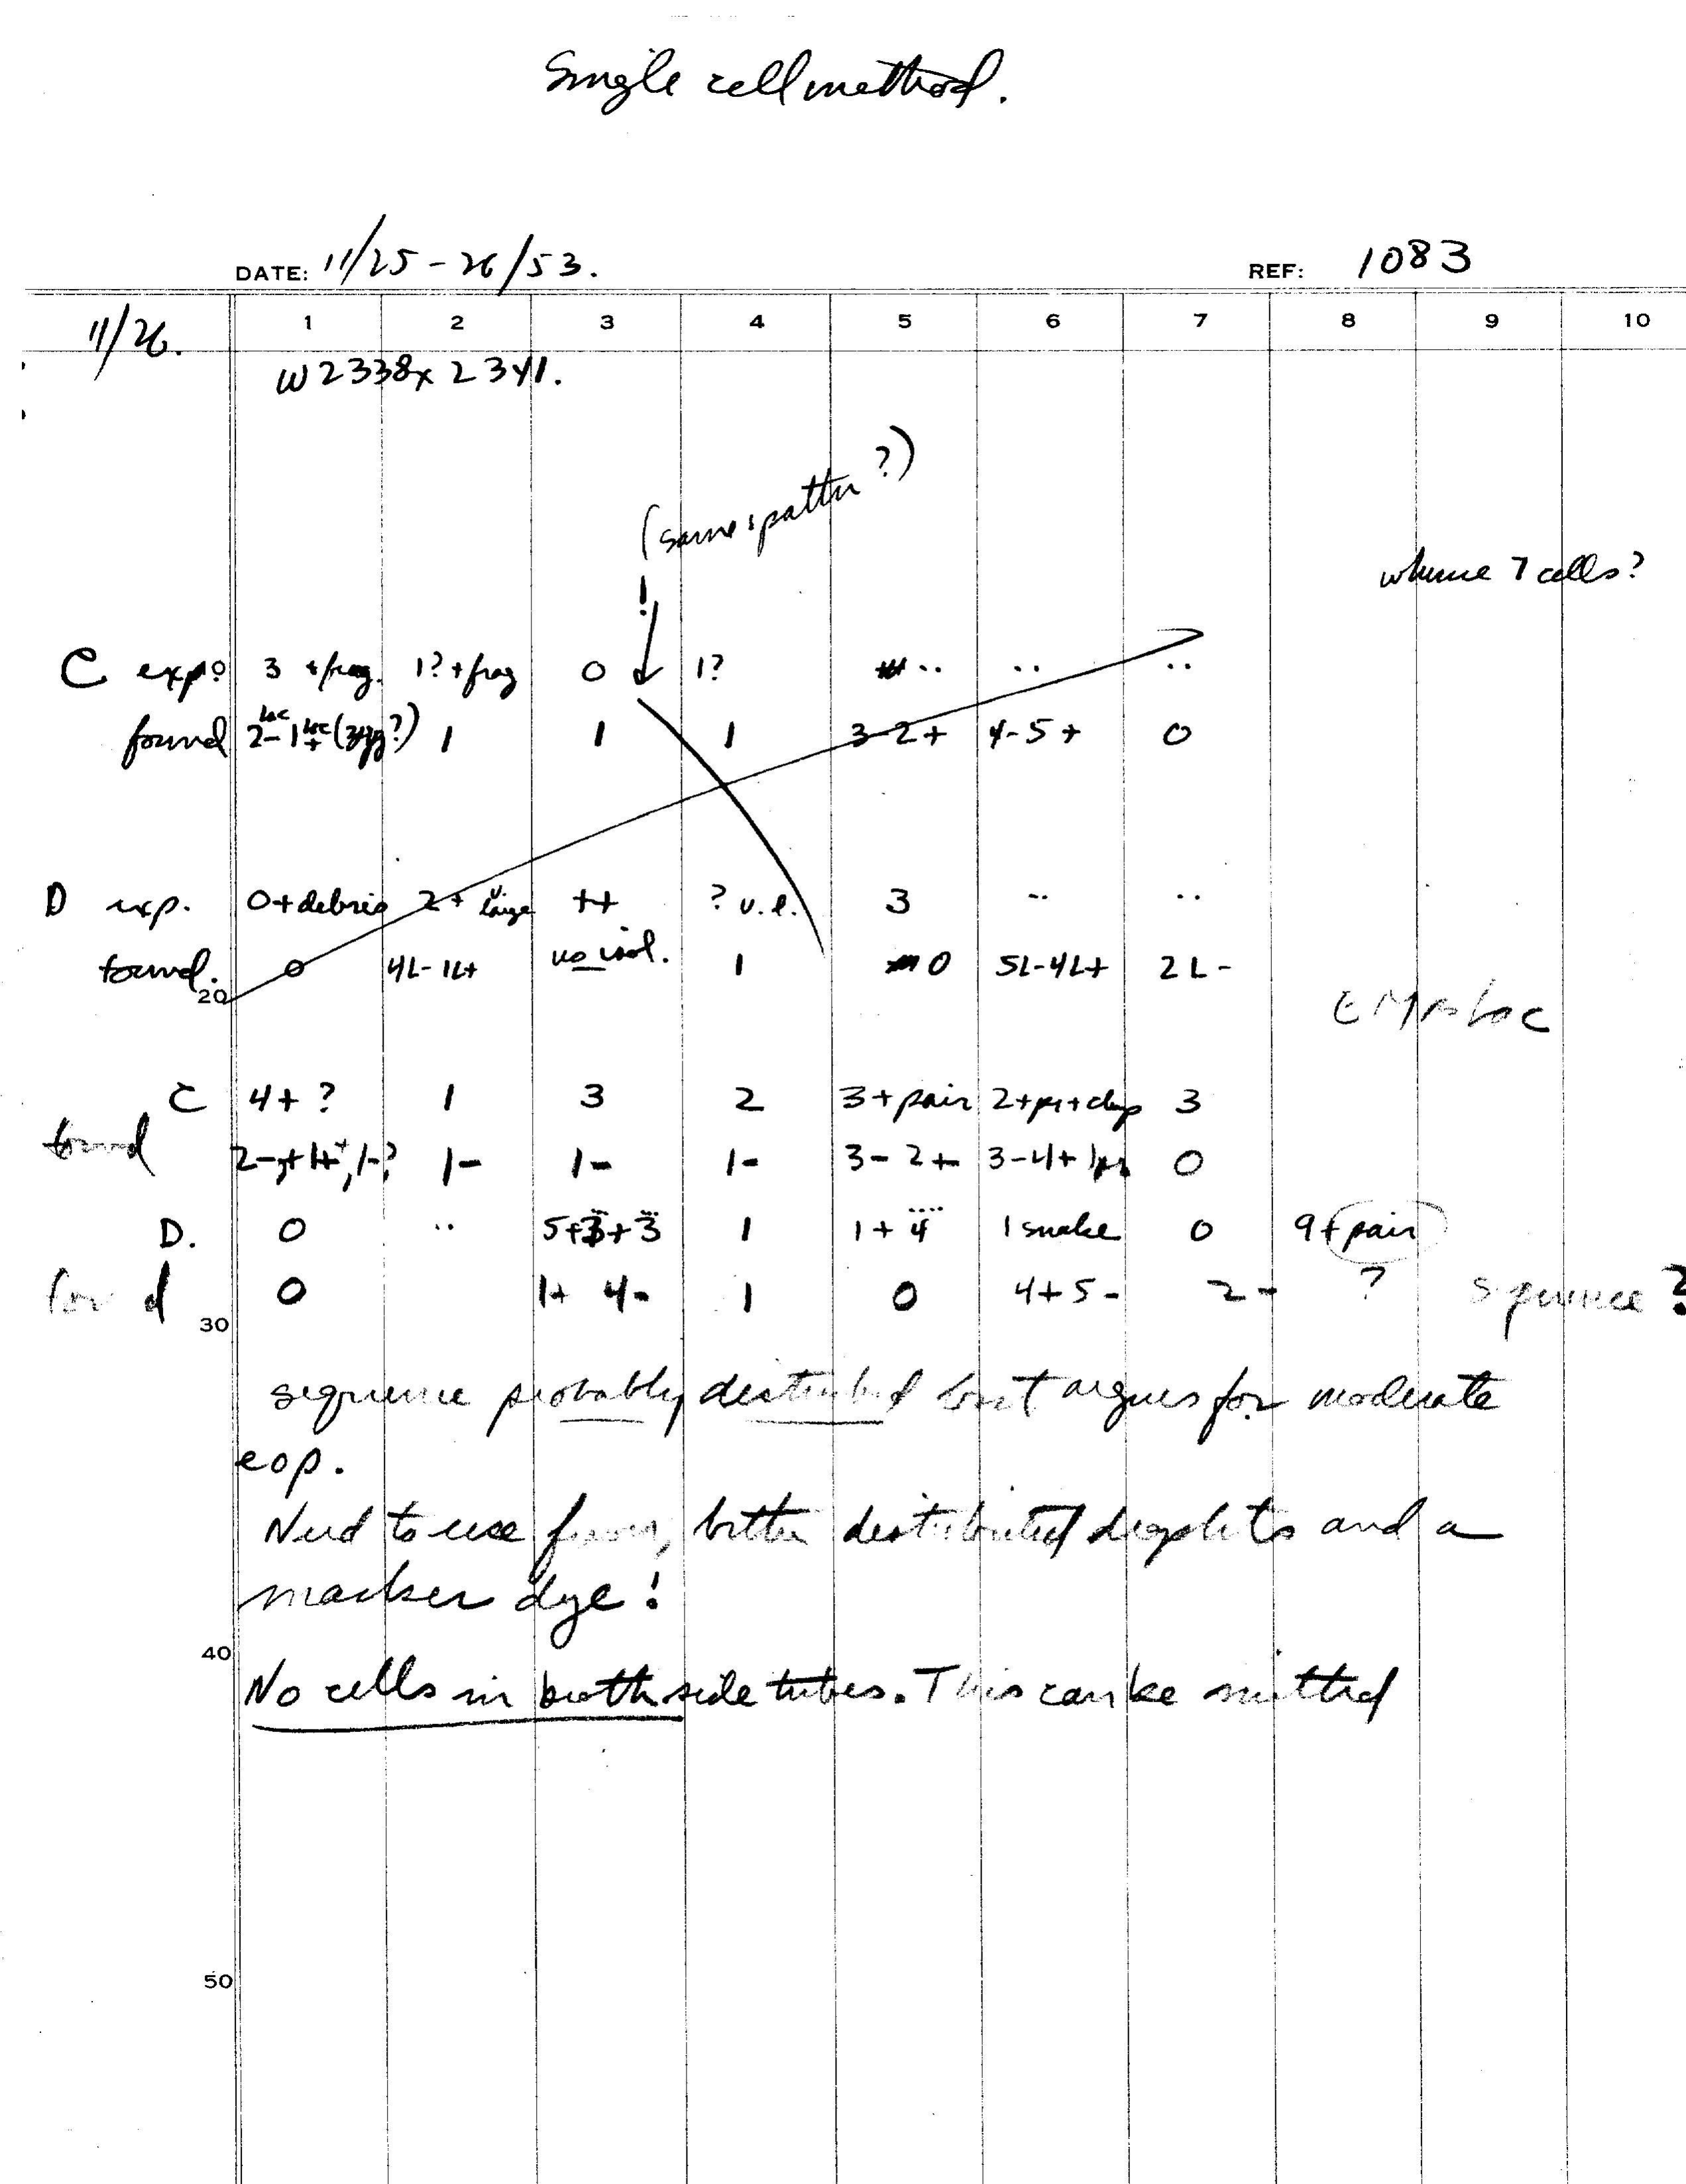 Single cell method.
DATE: 11/25-26/53. REF: 1083
11/26. 1 2 3 4 5 6 7 8 9 10
W2338x 2341.
(same patter ?)
!
whence 7 cells?
C exp. 3 + frag. 1? + frag 0 1? .. .. ..
found 2- 1+ 1 1 1 3-2+ 4-5+ 0
D exp. 0+debris 2+ large ++ ? v.l. 3 .. ..
found. 0 4L-1L+ no isol. 1 0 5L-4L+ 2L-
20
EMB Lac
C 4+? 1 3 2 3+pair 2+pr+clump 3
found 1- 1- 1- 3-2+ 3-4+ 0
D. 0 .. 5+3+3 1 1+4 1 snake 0 9+pair
found 0 1+ 4- 1 0 4+5- 2- ? sequence?
30
sequence probably disturbed but argues for moderate
eop.
Need to use fewer, better distributed droplets and a
marker dye!
40
No cells in broth side tubes. This can be omitted
50